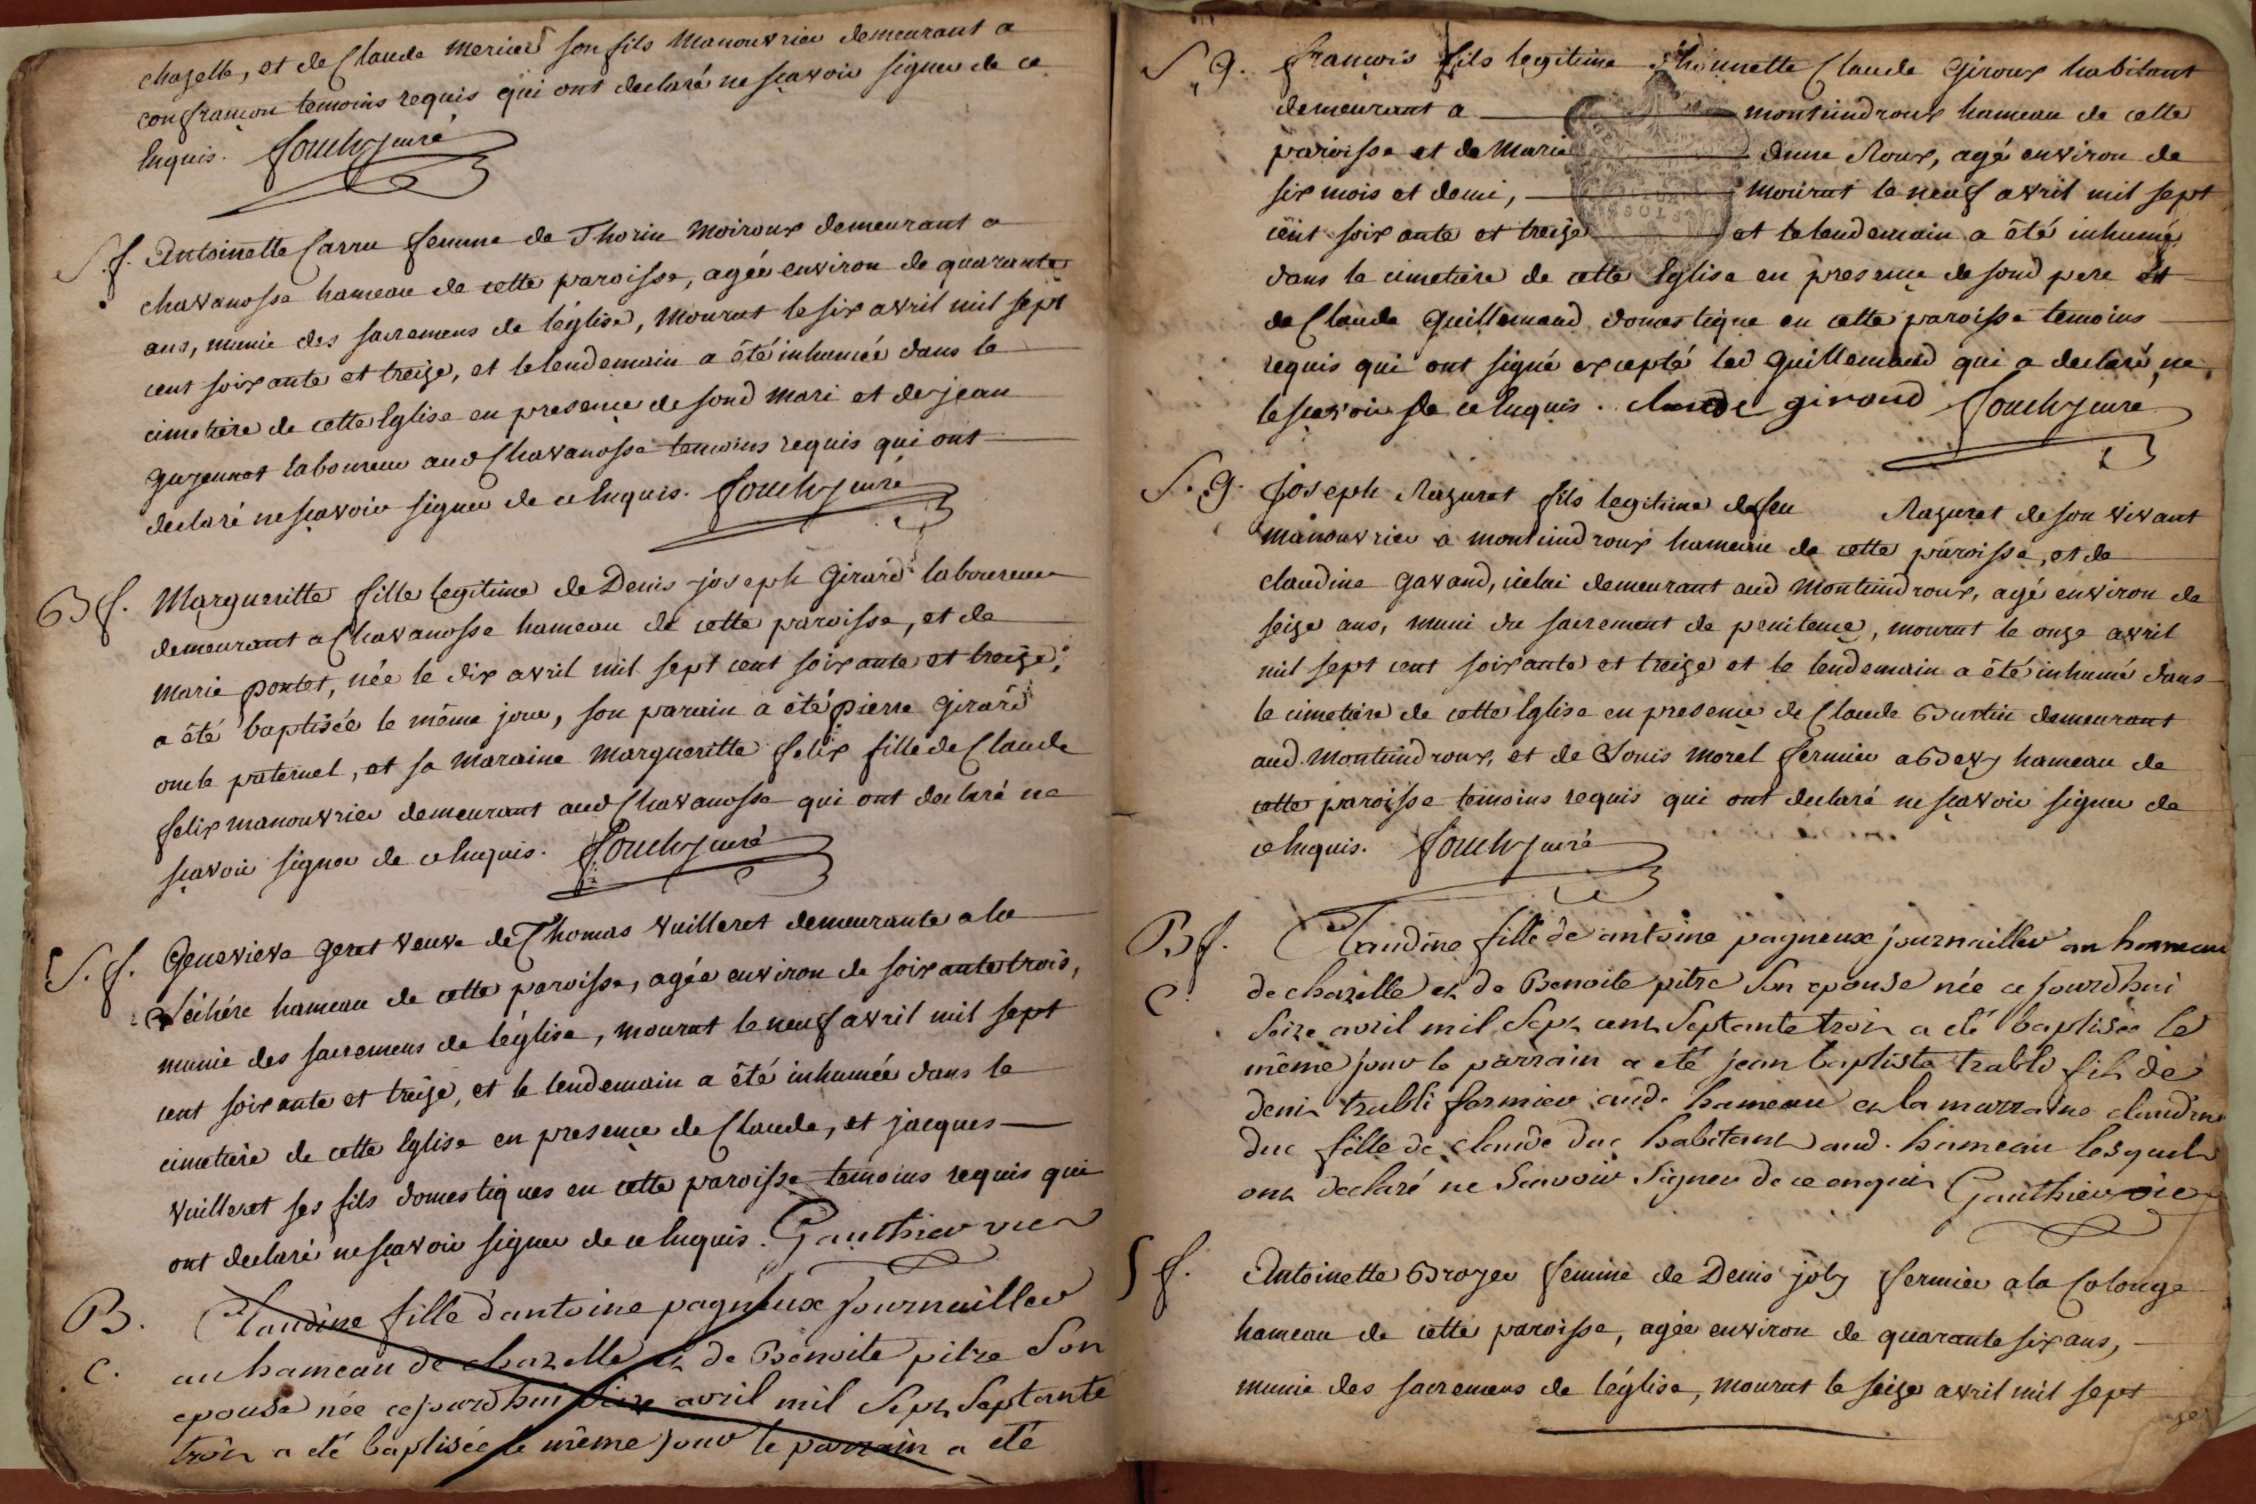 chazelle, et de Claude mercier son fils manouvrier demeurant a
confrançon temoins requis qui ont declaré ne sçavoir signer de ce
Enquis. fouchy curé
S. f. Antoinette Carru femme de Thorin Moiroux demeurant a
chavanosse hameau de cette paroisse, agée environ de quarante
ans, munie des sacremens de léglise, mourut le six avril mil sept
cent soixante et treize, et le lendemain a été inhumée dans le
cimetiere de cette Eglise en presence de sond mari et de jean
guyennot laboureur aud Chavanosse temoins requis qui ont
declaré ne sçavoir signer de ce Enquis. fouchy curé
B f. Margueritte fille legitime de Denis joseph Girard laboureur
demeurant a Chavanosse hameau de cette paroisse, et de
marie pontet, née le dix avril mil sept cent soixante et treize,
a été baptisée le même jour, son parain a été pierre Girard
oncle paternel, et sa maraine margueritte felix fille de Claude
felix manouvrier demeurant aud Chavanosse qui ont declaré ne
sçavoir signer de ce Enquis. fouchy curé
S. f. Genevieve geret veuve de Thomas vuilleret demeurante a la
hameau de cette paroisse, agée environ de soixante trois,
munie des sacremens de léglise, mourut le neuf avril mil sept
cent soixante et treize, et le lendemain a été inhumée dans le
cimetiere de cette Eglise en presence de Claude, et jacques
vuilleret ses fils domestiques en cette paroisse temoins requis qui
ont declaré ne sçavoir signer de ce Enquis. Gauthier vic
B. Claudine fille dantoine pagneux journaillier
C. au hameau de chazelle et de Benoite pitre Son
epouse née cejourdhui Seize avril mil Sept Septante
trois a eté baptisée le même jour le parrain a eté
S. g. françois fils legitime Claude Giroux habitant
demeurant a montuindroux hameau de cette
paroisse et de Marie Anne Roux, agé environ de
six mois et demi, mourut le neuf avril mil sept
cent soixante et treize et le lendemain a été inhumé
dans le cimetiere de cette Eglise en presence de sond pere et
de Claude Guillemaud domestique en cette paroisse temoins
requis qui ont signé excepté led Guillemaud qui a declaré ne
le sçavoir de ce Enquis. claude giroud fouchy curé
S. g. joseph Razuret fils legitime de feu Razuret de son vivant
manouvrier a montuindroux hameau de cette paroisse, et de
claudine gavand, icelui demeurant aud Montuindroux, agé environ de
seize ans, muni du sacrement de penitence, mourut le onze avril
mil sept cent soixante et treize et le lendemain a été inhumé dans
le cimetiere de cette Eglise en presence de Claude Burtin demeurant
aud. Montuindroux, et de Louis morel fermier a Bevy hameau de
cette paroisse temoins requis qui ont declaré ne sçavoir signer de
ce Enquis. fouchy curé
B f. Claudine fille de antoine pagneux journaillier au hameau
C. de chazelle et de Benoite pitre Son epouse née ce jourdhui
Seize avril mil Sept cent Septante trois a eté baptisée le
même jour le parrain a eté jean baptiste trabli fils de
denis trubli fermier aud. hameau et la marraine claudine
duc fille de claude duc habitant aud. hameau lesquels
ont declaré ne Sçavoir Signer de ce enquis Gauthier vic
S f. Antoinette Broyer femme de Denis joly fermier a la Colonge
hameau de cette paroisse, agée environ de quarante six ans,
munie des sacremens de léglise, mourut le seize avril mil sept